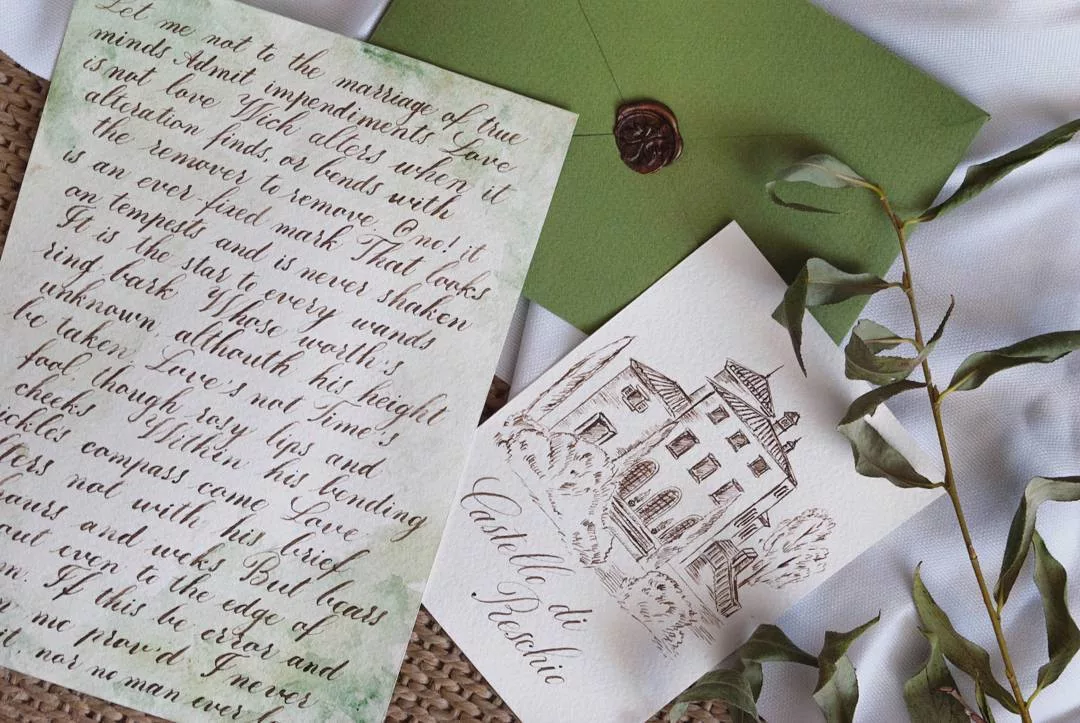 Let me not to the marriage of true
minds Admit impendiments Love
is not love Wich alters when it
alteration finds, or bends with
the remover to remove. O no! it
is an ever fixed mark That looks
on tempests and is never shaken
It is the star to every wands
ring bark Whose worth's
unknown, althouth his height
be taken Love's not Time's
fool though rosy lips and
cheeks Within his bending
ickles compass come Love
ffers not with his brief
hours and weks But bears
out even to the edge of
m. If this be error and
n me prov'd, I never
it, nor no man ever
Castello di
Reschio